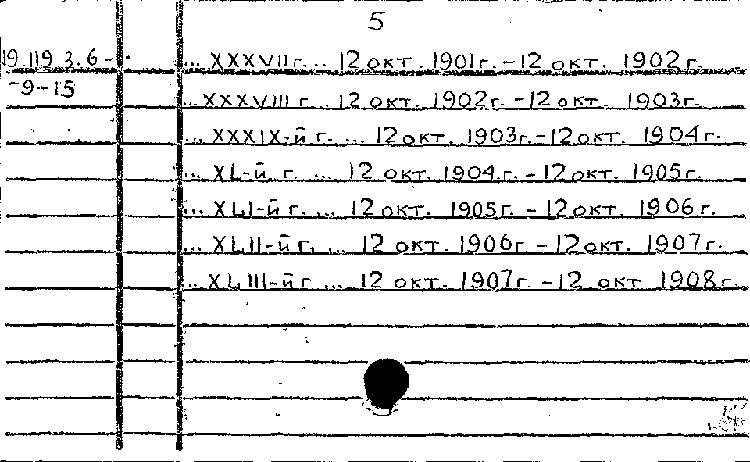 5
19.119 3.6-
-9-15
... XXXVII г. .. 12 окт. 1901 г. - 12 окт. 1902 г.
... XXXVIII г. .. 12 окт. 1902 г - 12 окт. 1903 г.
... XXXIX-й г. ... 12 окт. 1903 г. - 12 окт. 1904 г.
... XL-й г. ... 12 окт. 1904 г. - 12 окт. 1905 г.
... XLI-й г. ... 12 окт. 1905 г. - 12 окт. 1906 г.
... XLII-й г. ... 12 окт. 1906 г - 12 окт. 1907 г.
... XLIII-й г. ... 12 окт. 1907 г. - 12 окт. 1908 г.